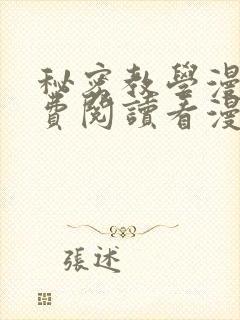 秘密教學漫
費閱讀看漫
張述